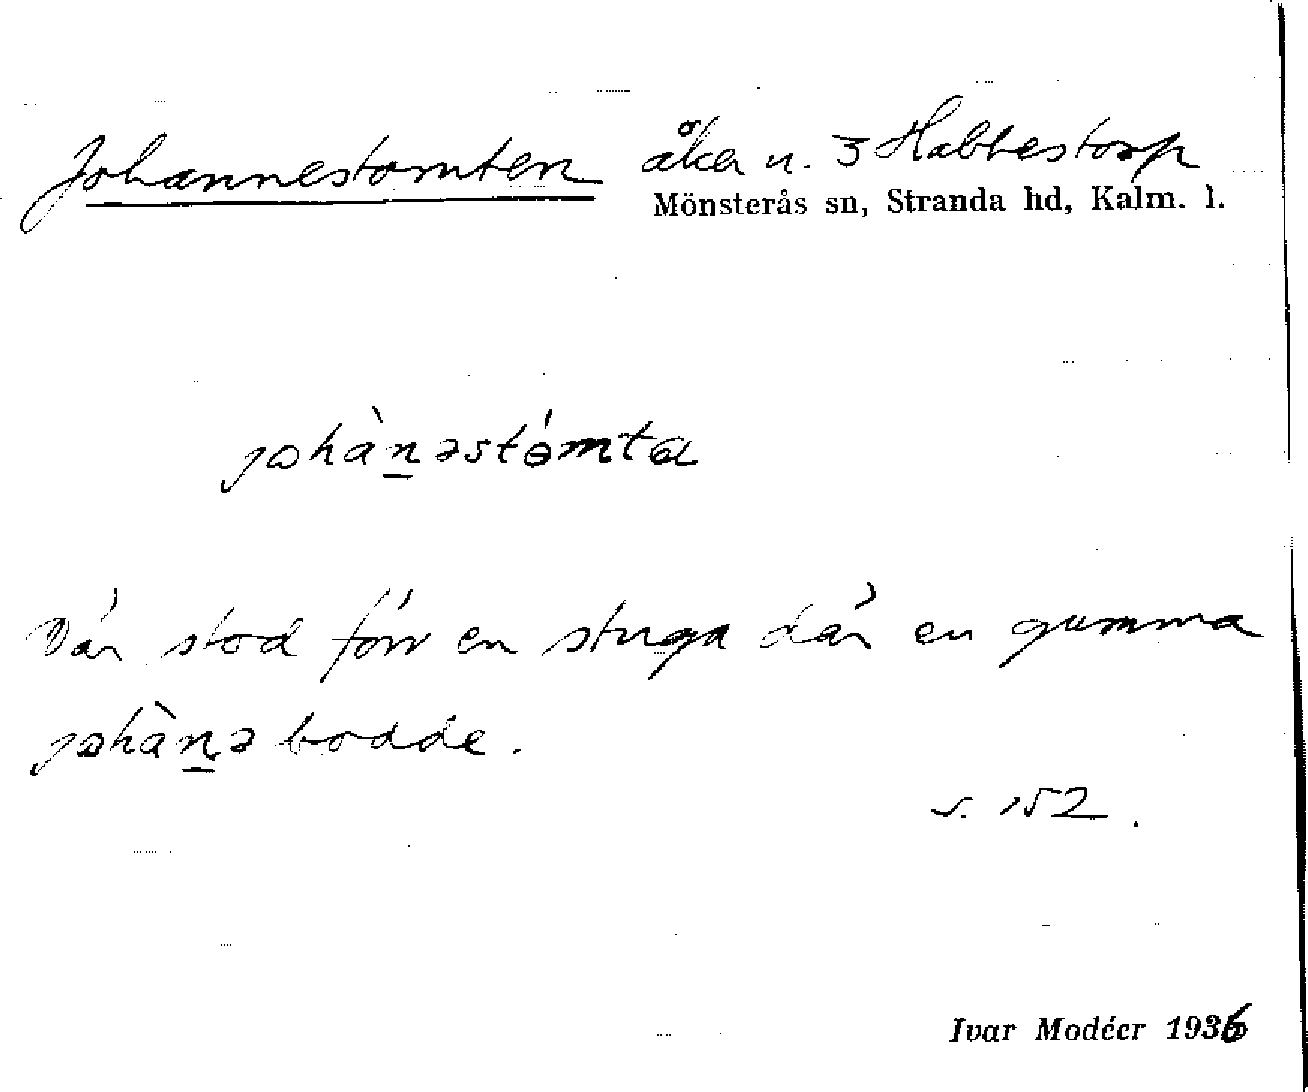 Johannestomten åker u. 3 Habbestorp
Mönsterås sn, Stranda hd, Kalm. l.
johànəstómta
Där stod förr en stuga där en gumma
johànə bodde.
s. 152.
Ivar Modéer 1936